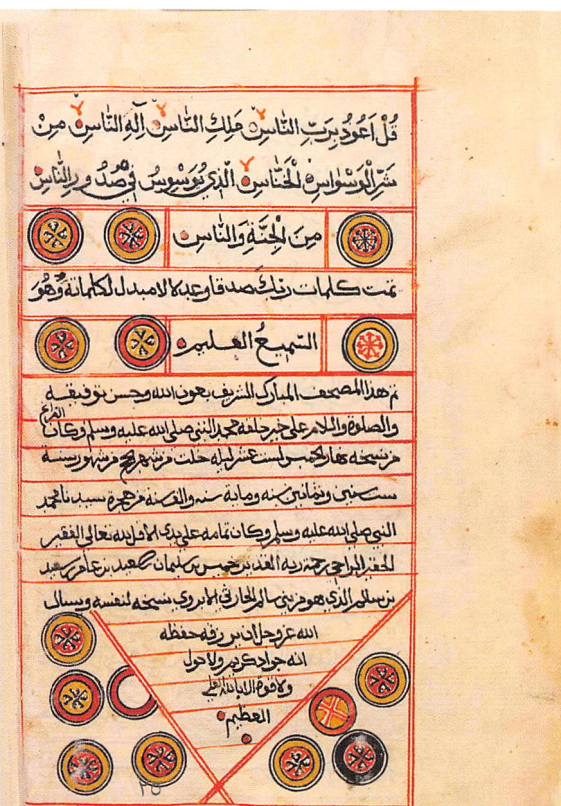 قُلْ اَعُوْذُ بِرَبِّ النَّاسِ مَلِكِ النَّاسِ اِلٰهِ النَّاسِ مِنْ
شَرِّ الْوَسْوَاسِ الْخَنَّاسِ الَّذِي يُوَسْوِسُ فِي صُدُورِ النَّاسِ
مِنَ الْجِنَّةِ وَالنَّاسِ
تمت كلمات ربك صدقا وعدلا لا مبدل لكلماته وَهُوَ
السَّمِيعُ العليم
تم هذا المصحف المبارك الشريف بعون الله وحسن توفيقه
والصلوة والسلام على خير خلقه محمد النبي صلى الله عليه وسلم وكان الفراغ
من نسخه نهار الخميس لست عشر ليله خلت من شهر الحج من شهور سنة
ست سنين وثمانين سنه ومايه سنه والف سنه من هجرة سيدنا محمد
النبي صلى الله عليه وسلم وكان تمامه على يدي الاقل لله تعالى الفقير
الحقير الراجي رحمة ربه القدير خميس بن سليمان بن سعيد بن عامر بن سعيد
بن سالم الذي هو من بني سالم الحارثي الابروي نسخه لنفسه ويسال
الله عز وجل ان يرزقه حفظه
انه جواد كريم ولا حول
ولا قوة الا بالله العلي
العظيم
٢٥